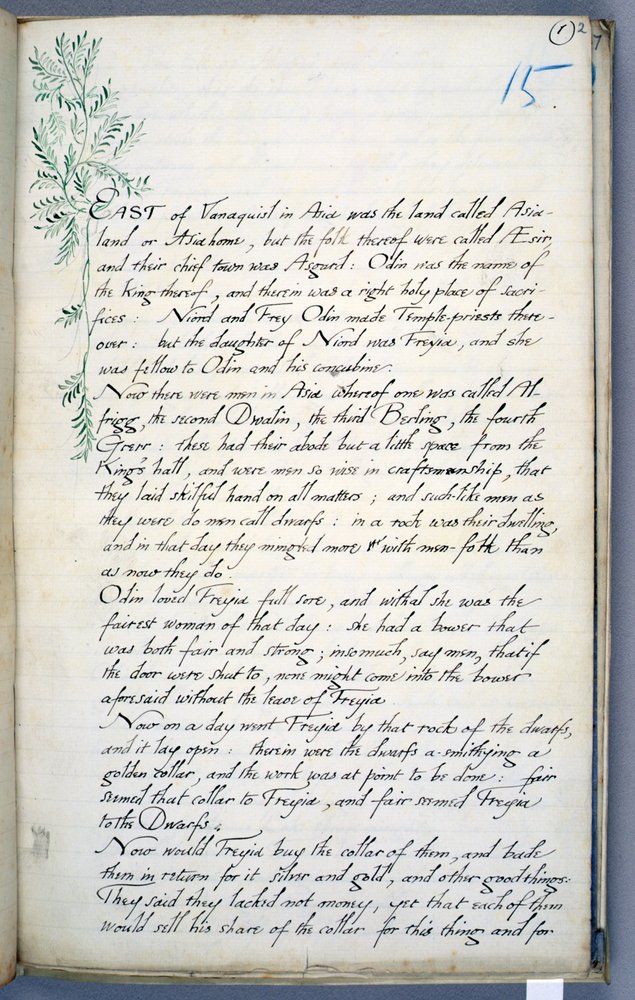 1 2
15
EAST of Vanaquisl in Asia was the land called Asia-
land or Asiahome, but the folk thereof were called Æsir,
and their chief town was Asgard: Odin was the name of
the King thereof, and therein was a right holy place of sacri-
fices: Niord and Frey Odin made Temple-priests there-
over: but the daughter of Niord was Freyia, and she
was fellow to Odin and his concubine.
Now there were men in Asia whereof one was called Al-
frigg, the second Dwalin, the third Berling, the fourth
Grerr: these had their abode but a little space from the
King's hall, and were men so wise in craftsmanship, that
they laid skilful hand on all matters; and such-like men as
they were do men call dwarfs: in a rock was their dwelling,
and in that day they mingled more with men-folk than
as now they do.
Odin loved Freyia full sore, and withal she was the
fairest woman of that day: she had a bower that
was both fair and strong; insomuch, say men, that if
the door were shut to, none might come into the bower
aforesaid without the leave of Freyia.
Now on a day went Freyia by that rock of the dwarfs,
and it lay open: therein were the dwarfs a-smithying a
golden collar, and the work was at point to be done: fair
seemed that collar to Freyia, and fair seemed Freyia
to the Dwarfs.
Now would Freyia buy the collar of them, and bade
them in return for it silver and gold, and other good things:
They said they lacked not money, yet that each of them
would sell his share of the collar for this thing and for